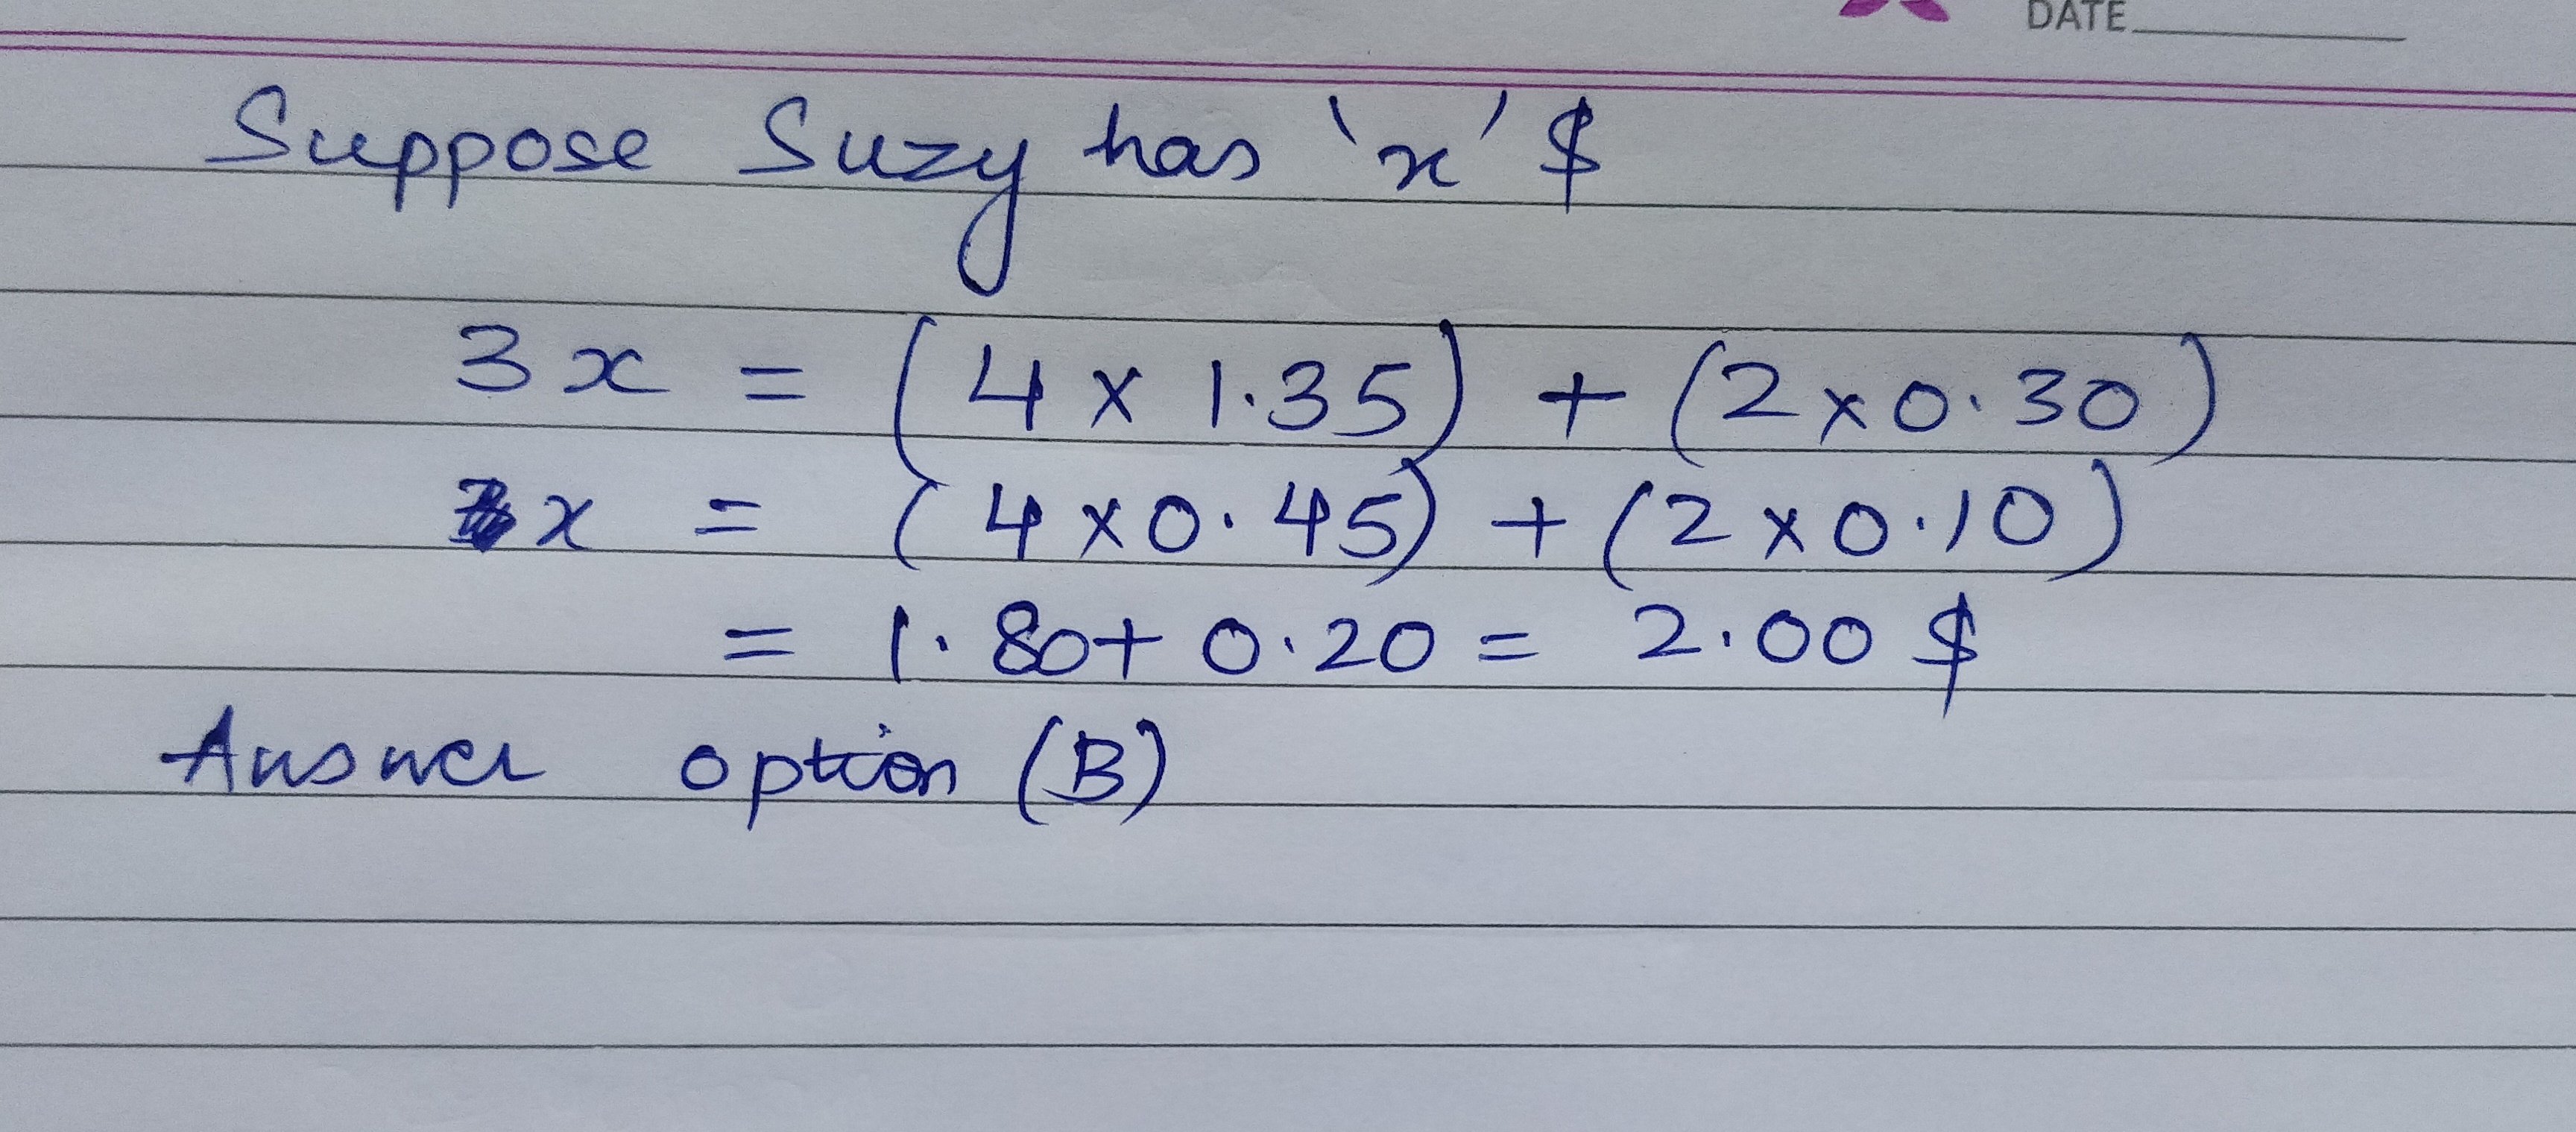 DATE
Suppose Suzy has 'x' $
3x = (4 x 1.35) + (2 x 0.30)
x = (4 x 0.45) + (2 x 0.10)
= 1.80 + 0.20 = 2.00 $
Answer option (B)